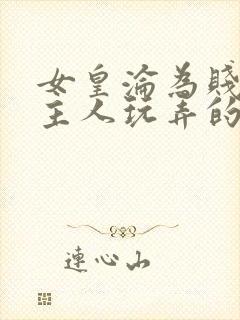 女皇淪為賤
主人玩弄的
連心山